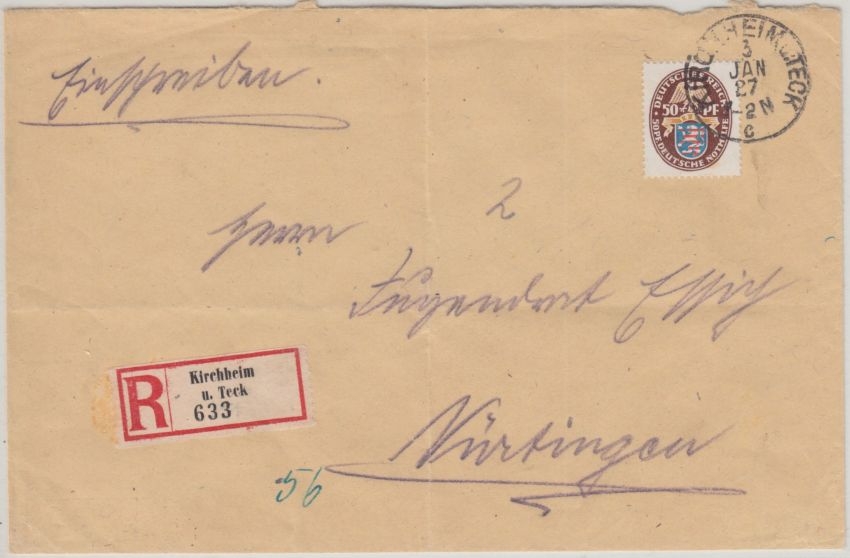 Einschreiben.
KIRCHHEIM u. TECK
3
JAN
27
1-2 N
c
DEUTSCHES REICH
50 PF
50 PF. DEUTSCHE NOTHILFE
2
Herrn
Jugendrat Essich
R
Kirchheim
u. Teck
633
Nürtingen
56